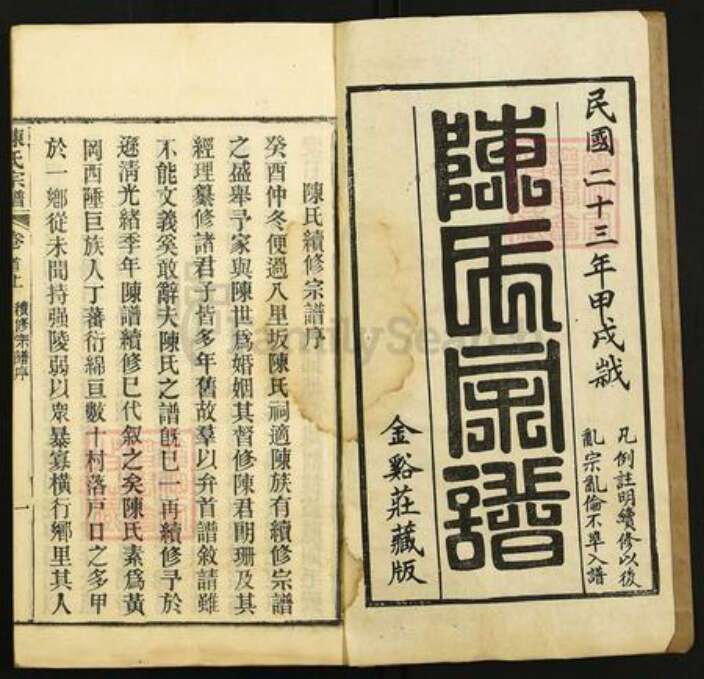 民國二十三年甲戌歲
凡例註明續修以後
亂宗亂倫不準入譜
陳氏宗譜
金谿莊藏版
陳氏續修宗譜序
癸酉仲冬便過八里坂陳氏祠適陳族有續修宗譜
之盛舉予家與陳世爲婚姻其督修陳君朗珊及其
經理纂修諸君子皆多年舊故羣以弁首譜敘請雖
不能文義奚敢辭夫陳氏之譜旣已一再續修予於
遜清光緒季年陳譜續修已代叙之矣陳氏素爲黃
岡西陲巨族人丁蕃衍綿亘數十村落戸口之多甲
於一鄉從未聞持强陵弱以衆暴寡橫行鄉里其人
陳氏宗譜
卷首上
續修宗譜序
一
FamilySearch